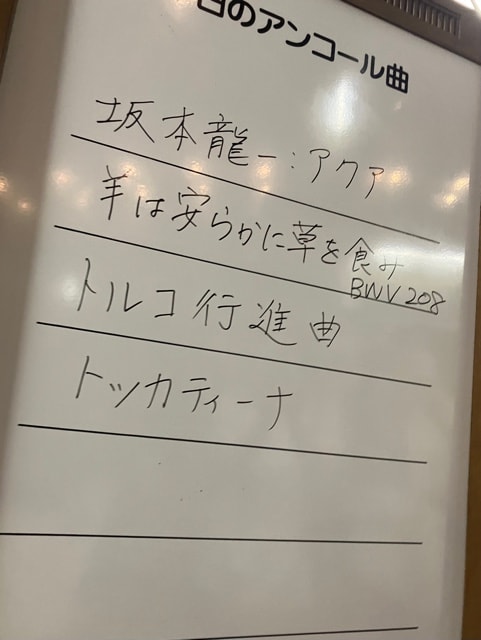 日のアンコール曲
坂本龍一:アクア
羊は安らかに草を食み
BWV 208
トルコ行進曲
トッカティーナ